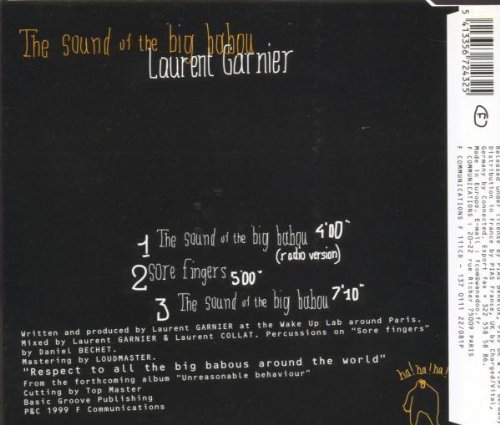 The sound of the big babou
Laurent Garnier
1 The sound of the big babou 4'00"
(radio version)
2 sore fingers 5'00"
3 The sound of the big babou 7'10"
Written and produced by Laurent GARNIER at the Wake Up Lab around Paris.
Mixed by Laurent GARNIER & Laurent COLLAT. Percussions on "Sore fingers"
by Daniel BECHET.
Mastering by LOUDMASTER.
"Respect to all the big babous around the world"
From the forthcoming album "Unreasonable behaviour"
Cutting by Top Master
Basic Groove Publishing
P&C 1999 F Communications
ha! ha! ha!
5 413356 724325
F
Distribution in France by PIAS France, UK by Charged/Vital,
Germany by Connected. Export fax + 322 558 58 86.
Made in Europe. E-mail : fcom@wanadoo.fr
F COMMUNICATIONS : 20-22 rue Richer 75009 PARIS
F COMMUNICATIONS F 111CD - 137 0111 22/081P